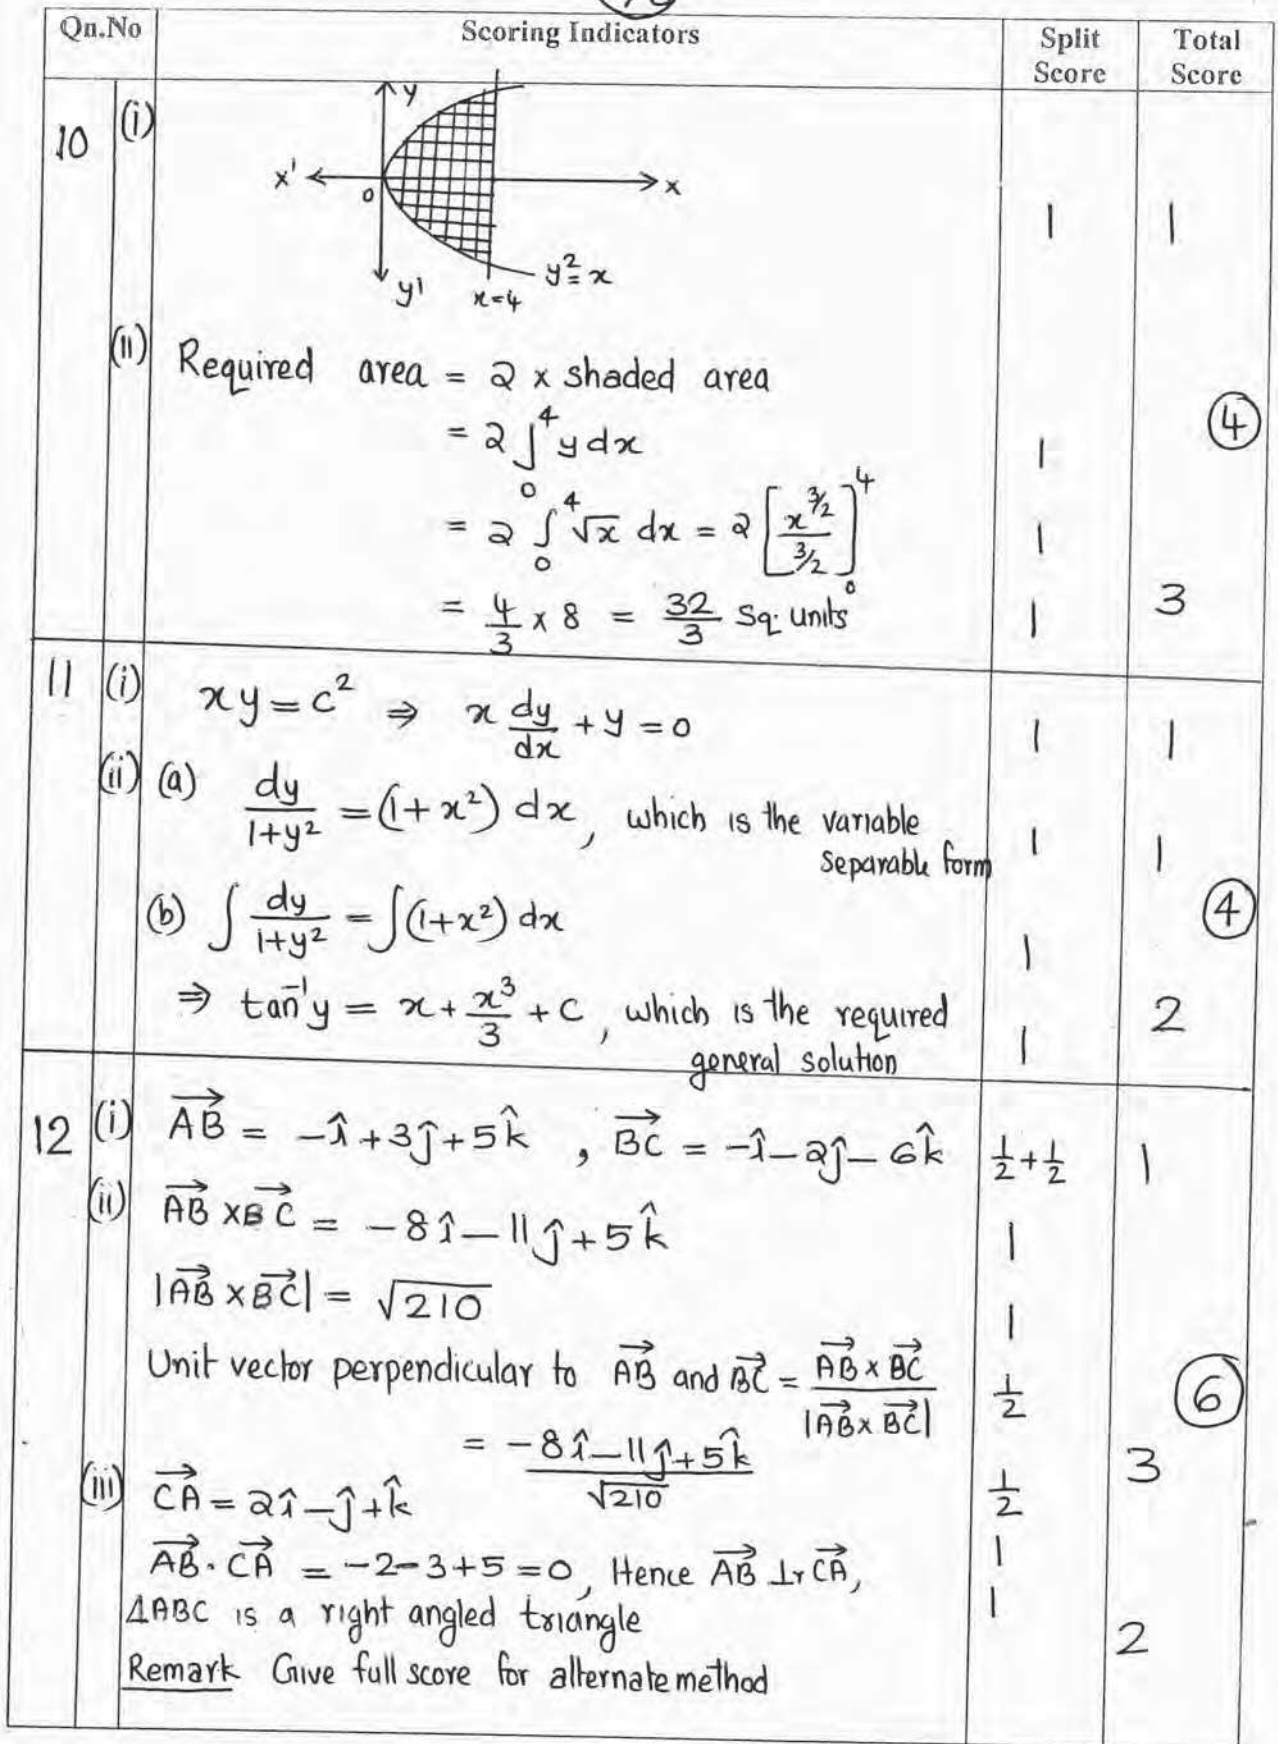 Qn.No Scoring Indicators Split Score Total Score
10 (i) y
x' 0 x
1 1
y' x=4 y²=x
(ii) Required area = 2 x shaded area
④
= 2 ∫₀⁴ y dx 1
= 2 ∫₀⁴ √x dx = 2 [x^(3/2) / (3/2)]₀⁴ 1
= 4/3 x 8 = 32/3 Sq. units 1 3
11 (i) xy = c² ⇒ x dy/dx + y = 0 1 1
(ii) (a) dy/(1+y²) = (1+x²) dx, which is the variable
separable form 1 1
(b) ∫ dy/(1+y²) = ∫(1+x²) dx 1 ④
⇒ tan⁻¹y = x + x³/3 + C, which is the required 2
general solution 1
12 (i) →AB = -î+3ĵ+5k̂ , →BC = -î-2ĵ-6k̂ ½+½ 1
(ii) →AB x →BC = -8î-11ĵ+5k̂ 1
|→AB x →BC| = √210 1
Unit vector perpendicular to →AB and →BC = (→AB x →BC)/|→AB x →BC| ½ ⑥
= (-8î-11ĵ+5k̂)/√210 3
(iii) →CA = 2î-ĵ+k̂ ½
→AB . →CA = -2-3+5 = 0, Hence →AB ⊥r →CA, 1
ΔABC is a right angled triangle 1
2
Remark Give full score for alternate method